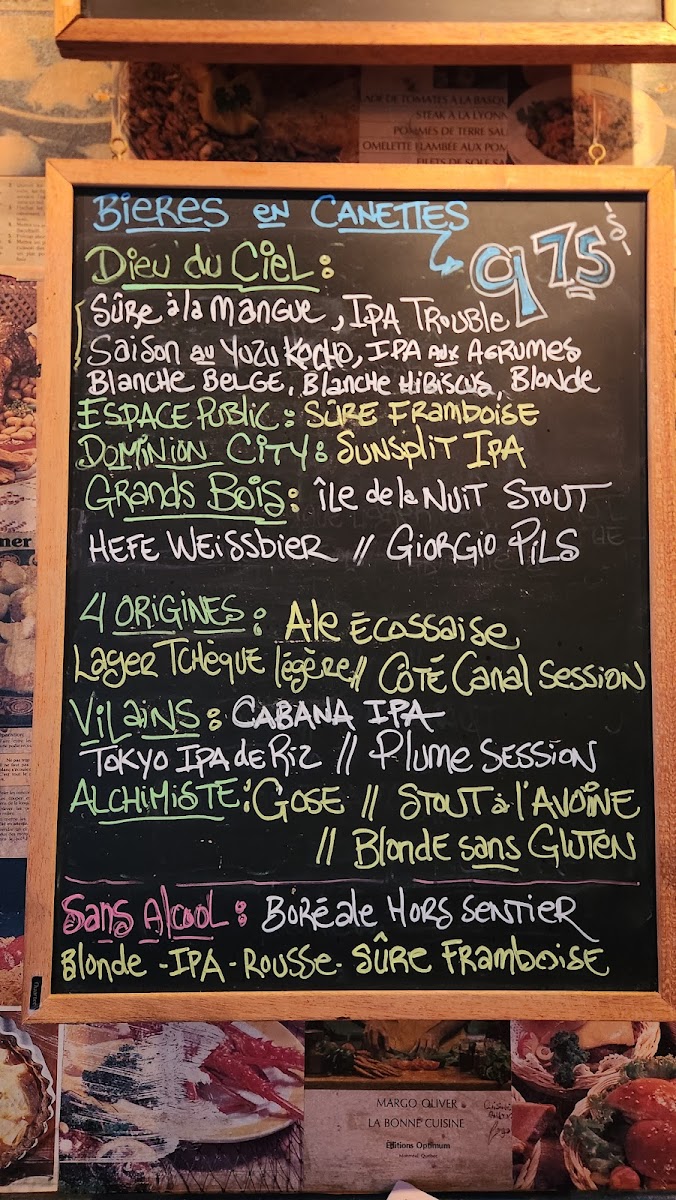 ADE DE TOMATES À LA BASQU
STEAK À LA LYONN
POMMES DE TERRE SAU
OMELETTE FLAMBÉE AUX POM
FILETS DE SOLE SA
BIERES EN CANETTES
9 75 $
DIEU DU CIEL :
SÛRE à la MANGUE, IPA TROUBLE
SAISON AU YUZU KOCHO, IPA AUX AGRUMES
BLANCHE BELGE, BLANCHE HIBISCUS, BLONDE
ESPACE PUBLIC : SÛRE FRAMBOISE
DOMINION CITY : SUNSPLIT IPA
GRANDS BOIS : ÎLE de la NUIT STOUT
HEFE WEISSBIER // GIORGIO PILS
4 ORIGINES : ALE ÉCOSSAISE
LAGER TCHÈQUE légère // CÔTÉ CANAL SESSION
VILAINS : CABANA IPA
TOKYO IPA de RIZ // PLUME SESSION
ALCHIMISTE : GOSE // STOUT à l'AVOINE
// BLONDE SANS GLUTEN
SANS ALCOOL : BORÉALE HORS SENTIER
BLONDE - IPA - ROUSSE - SÛRE FRAMBOISE
MARGO OLIVER
LA BONNE CUISINE
Éditions Optimum
Montréal, Québec